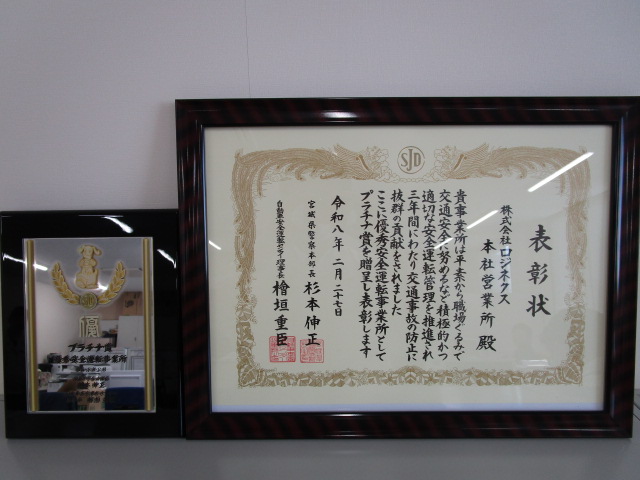 SJD
表彰状
株式会社ロジネクス
本社営業所 殿
貴事業所は平素から職場ぐるみで
交通安全に努めるなど積極的かつ
適切な安全運転管理を推進され
三年間にわたり交通事故の防止に
抜群の貢献をされました
ここに優秀安全運転事業所として
プラチナ賞を贈呈し表彰します
令和八年二月二十七日
宮城県警察本部長 杉本伸正
自動車安全運転センター理事長 檜垣重臣
プラチナ賞
優秀安全運転事業所